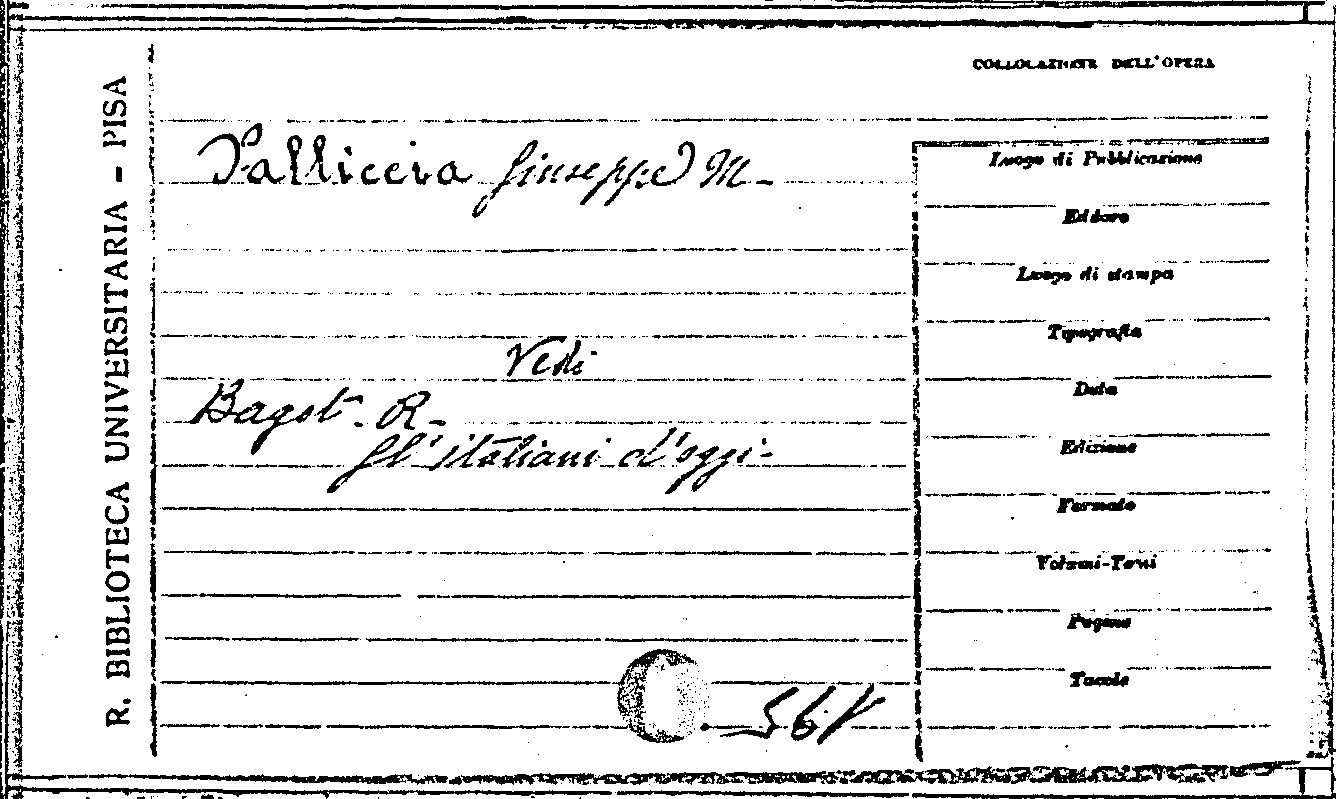 R. BIBLIOTECA UNIVERSITARIA - PISA
COLLOCAZIONE DELL'OPERA
Palliccia Giuseppe M.
Vedi
Bagot. R.
Gl'italiani d'oggi.
Luogo di Pubblicazione
Editore
Luogo di stampa
Tipografia
Data
Edizione
Formato
Volumi-Tomi
Pagine
Tavole